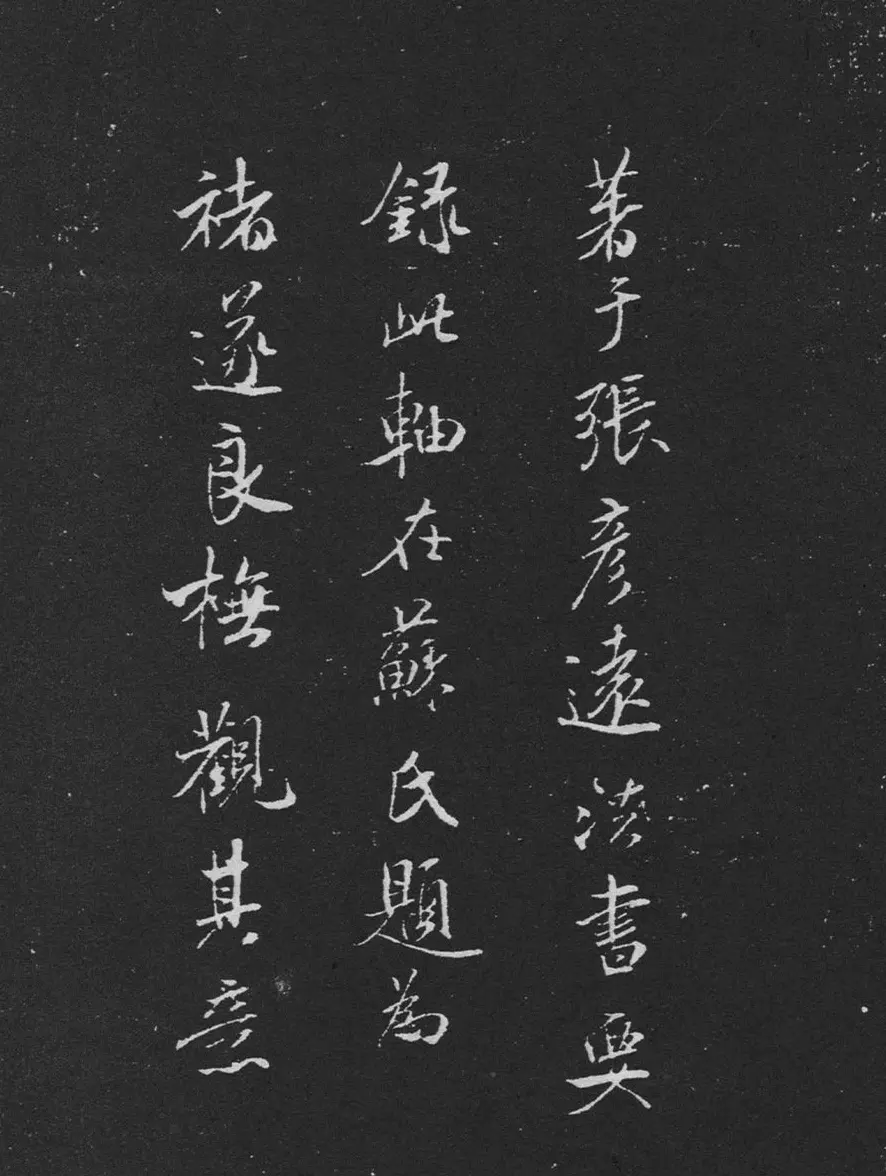 著于張彥遠法書要
録此軸在蘇氏題為
褚遂良橅觀其意